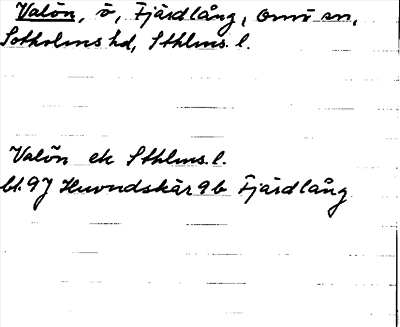 Valön, ö, Fjärdlång, Ornö sn,
Sotholms hd, Sthlms. l.
Valön ek Sthlms. l.
bl. 9J Huvudskär 9b Fjärdlång